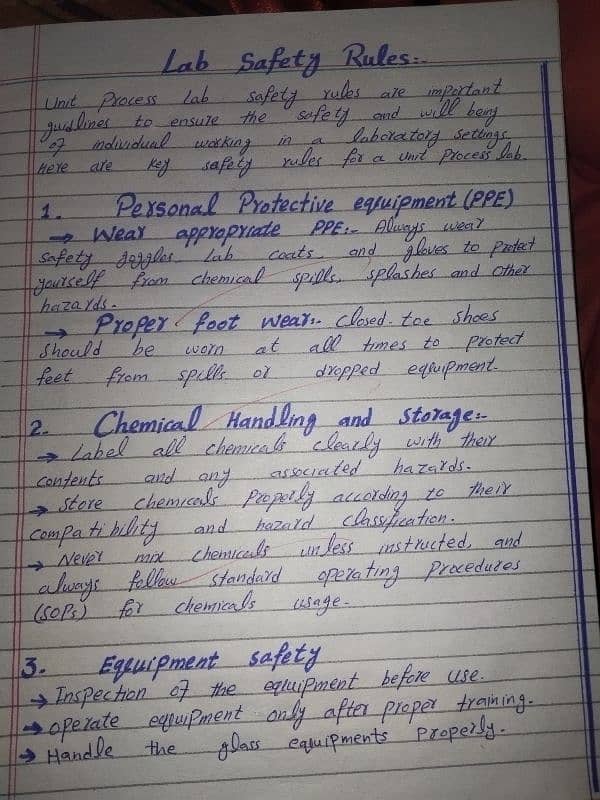 Lab Safety Rules:-
Unit Process Lab safety rules are important
guidlines to ensure the safety and will being
of individual working in a laboratory settings.
Here are key safety rules for a unit Process lab.
1. Personal Protective equipment (PPE)
→ Wear appropriate PPE:- Always wear
safety goggles, lab coats, and gloves to protect
yourself from chemical spills, splashes and other
hazards.
→ Proper foot wear:- Closed-toe shoes
should be worn at all times to protect
feet from spills or dropped equipment.
2. Chemical Handling and Storage:-
→ Label all chemicals clearly with their
contents and any associated hazards.
→ Store chemicals Properly according to their
compatibility and hazard classification.
→ Never mix chemicals unless instructed, and
always follow standard operating Procedures
(SOPs) for chemicals usage.
3. Equipment safety
→ Inspection of the equipment before use.
→ operate equipment only after proper training.
→ Handle the glass equipments Properly.